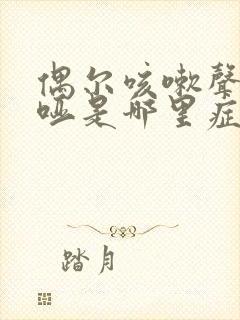 偶尔咳嗽聲
哑是哪里症
踏月